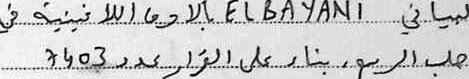 البياني ELBAYANI بالاحرف اللاتينية في
صلب الرسم. بناء على القرار عدد 7403